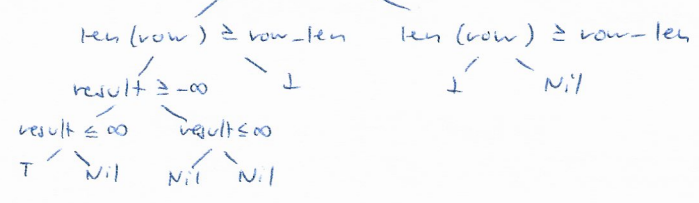 len(row) ≥ row_len len(row) ≥ row_len
result ≥ -∞ ⊥ ⊥ Nil
result ≤ ∞ result ≤ ∞
T Nil Nil Nil